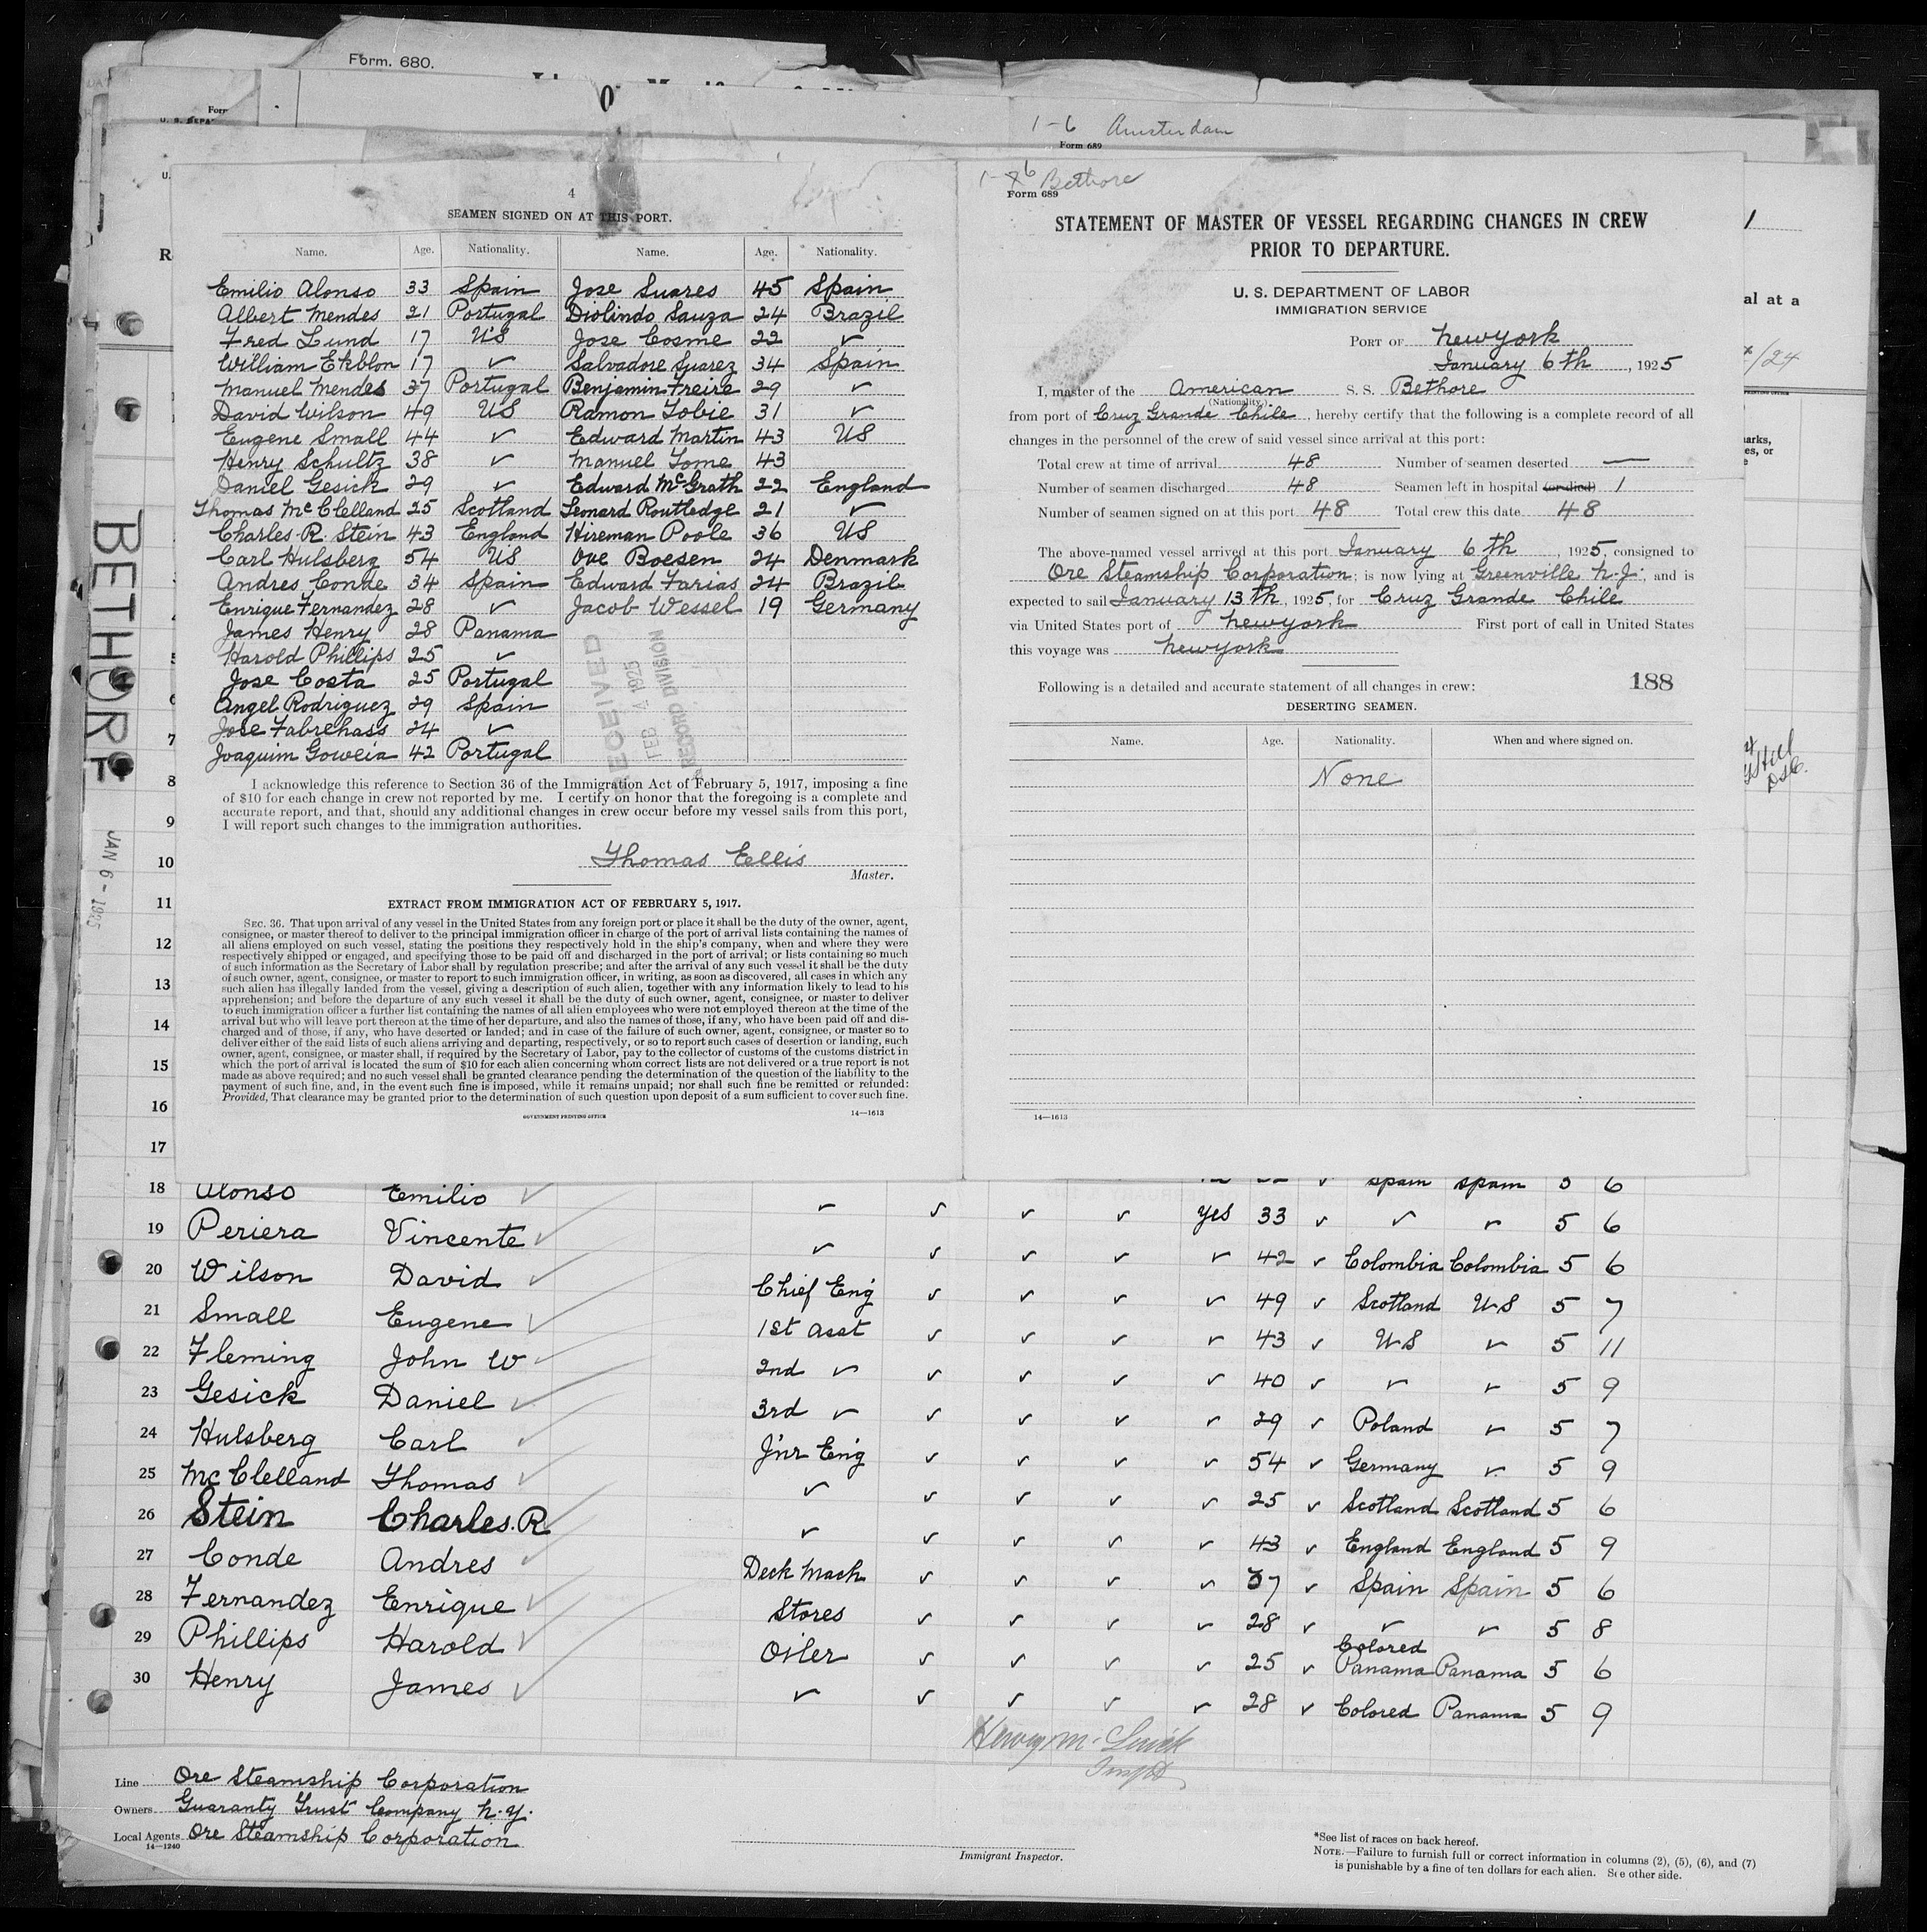 Form. 680.
1-6 Amsterdam
Form 689
4
SEAMEN SIGNED ON AT THIS PORT.
Name. Age. Nationality. Name. Age. Nationality.
Emilio Alonso 33 Spain Jose Suares 45 Spain
Albert Mendes 21 Portugal Diolindo Sauza 24 Brazil
Fred Lund 17 US Jose Cosme 22 ✓
William Ekblon 17 ✓ Salvadore Suarez 34 Spain
Manuel Mendes 37 Portugal Benjamin Freire 29 ✓
David Wilson 49 US Ramon Tobie 31 ✓
Eugene Small 44 ✓ Edward Martin 43 US
Henry Schultz 38 ✓ Manuel Tome 43
Daniel Gesick 29 ✓ Edward McGrath 22 England
Thomas McClelland 25 Scotland Leonard Routledge 21 ✓
Charles R. Stein 43 England Hireman Poole 36 US
Carl Hulsberg 54 US Ove Boesen 24 Denmark
Andres Conde 34 Spain Edward Farias 24 Brazil
Enrique Fernandez 28 ✓ Jacob Wessel 19 Germany
James Henry 28 Panama
Harold Phillips 25 ✓
Jose Costa 25 Portugal
Angel Rodriguez 29 Spain
Jose Fabrehass 24 ✓
Joaquim Goweia 42 Portugal
RECEIVED
FEB 1925
RECORD DIVISION
I acknowledge this reference to Section 36 of the Immigration Act of February 5, 1917, imposing a fine
of $10 for each change in crew not reported by me. I certify on honor that the foregoing is a complete and
accurate report, and that, should any additional changes in crew occur before my vessel sails from this port,
I will report such changes to the immigration authorities.
Thomas Ellis
Master.
EXTRACT FROM IMMIGRATION ACT OF FEBRUARY 5, 1917.
SEC. 36. That upon arrival of any vessel in the United States from any foreign port or place it shall be the duty of the owner, agent,
consignee, or master thereof to deliver to the principal immigration officer in charge of the port of arrival lists containing the names of
all aliens employed on such vessel, stating the positions they respectively hold in the ship's company, when and where they were
respectively shipped or engaged, and specifying those to be paid off and discharged in the port of arrival; or lists containing so much
of such information as the Secretary of Labor shall by regulation prescribe; and after the arrival of any such vessel it shall be the duty
of such owner, agent, consignee, or master to report to such immigration officer, in writing, as soon as discovered, all cases in which any
such alien has illegally landed from the vessel, giving a description of such alien, together with any information likely to lead to his
apprehension; and before the departure of any such vessel it shall be the duty of such owner, agent, consignee, or master to deliver
to such immigration officer a further list containing the names of all alien employees who were not employed thereon at the time of the
arrival but who will leave port thereon at the time of her departure, and also the names of those, if any, who have been paid off and dis-
charged and of those, if any, who have deserted or landed; and in case of the failure of such owner, agent, consignee, or master so to
deliver either of the said lists of such aliens arriving and departing, respectively, or so to report such cases of desertion or landing, such
owner, agent, consignee, or master shall, if required by the Secretary of Labor, pay to the collector of customs of the customs district in
which the port of arrival is located the sum of $10 for each alien concerning whom correct lists are not delivered or a true report is not
made as above required; and no such vessel shall be granted clearance pending the determination of the question of the liability to the
payment of such fine, and, in the event such fine is imposed, while it remains unpaid; nor shall such fine be remitted or refunded:
Provided, That clearance may be granted prior to the determination of such question upon deposit of a sum sufficient to cover such fine.
GOVERNMENT PRINTING OFFICE 14—1613
1-6 Bethore
Form 689
STATEMENT OF MASTER OF VESSEL REGARDING CHANGES IN CREW
PRIOR TO DEPARTURE.
U. S. DEPARTMENT OF LABOR
IMMIGRATION SERVICE
PORT OF Newyork
January 6th, 1925
I, master of the American S. S. Bethore
(Nationality.)
from port of Cruz Grande Chile, hereby certify that the following is a complete record of all
changes in the personnel of the crew of said vessel since arrival at this port:
Total crew at time of arrival 48 Number of seamen deserted —
Number of seamen discharged 48 Seamen left in hospital (or died) 1
Number of seamen signed on at this port 48 Total crew this date 48
The above-named vessel arrived at this port January 6th, 1925, consigned to
Ore Steamship Corporation; is now lying at Greenville N.J., and is
expected to sail January 13th, 1925, for Cruz Grande Chile
via United States port of Newyork First port of call in United States
this voyage was Newyork
Following is a detailed and accurate statement of all changes in crew: 188
DESERTING SEAMEN.
Name. Age. Nationality. When and where signed on.
None
14—1613
BETHORE
JAN 6 - 1925
8
9
10
11
12
13
14
15
16
17
18 Alonso Emilio ✓ Spain Spain 5 6
19 Periera Vincente ✓ ✓ ✓ ✓ ✓ yes 33 ✓ ✓ ✓ 5 6
20 Wilson David ✓ ✓ ✓ ✓ ✓ ✓ 42 ✓ Colombia Colombia 5 6
21 Small Eugene Chief Eng ✓ ✓ ✓ ✓ 49 ✓ Scotland US 5 7
22 Fleming John W 1st Asst ✓ ✓ ✓ ✓ 43 ✓ US ✓ 5 11
23 Gesick Daniel 2nd ✓ ✓ ✓ ✓ ✓ 40 ✓ ✓ ✓ 5 9
24 Hulsberg Carl 3rd ✓ ✓ ✓ ✓ ✓ 29 ✓ Poland ✓ 5 7
25 McClelland Thomas J'nr Eng ✓ ✓ ✓ ✓ 54 ✓ Germany ✓ 5 9
26 Stein Charles.R ✓ ✓ ✓ ✓ ✓ 25 ✓ Scotland Scotland 5 6
27 Conde Andres ✓ ✓ ✓ ✓ ✓ 43 ✓ England England 5 9
28 Fernandez Enrique Deck Mach ✓ ✓ ✓ ✓ 37 ✓ Spain Spain 5 6
29 Phillips Harold Stores ✓ ✓ ✓ ✓ 28 ✓ ✓ ✓ 5 8
30 Henry James Oiler ✓ ✓ ✓ ✓ 25 ✓ Colored Panama Panama 5 6
✓ ✓ ✓ ✓ ✓ 28 ✓ Colored Panama 5 9
Line Ore Steamship Corporation
Owners Guaranty Trust Company N.Y.
Local Agents Ore Steamship Corporation
14—1240
Immigrant Inspector.
*See list of races on back hereof.
NOTE.—Failure to furnish full or correct information in columns (2), (5), (6), and (7)
is punishable by a fine of ten dollars for each alien. See other side.